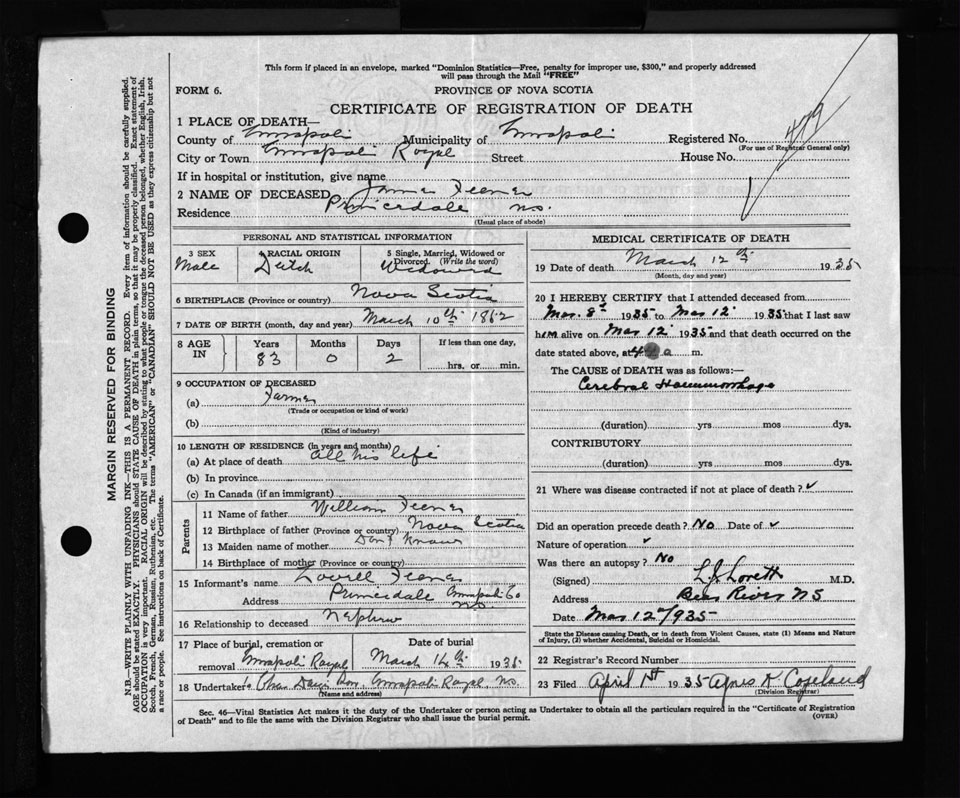 This form if placed in an envelope, marked "Dominion Statistics—Free, penalty for improper use, $300," and properly addressed
will pass through the Mail "FREE"
FORM 6. PROVINCE OF NOVA SCOTIA
CERTIFICATE OF REGISTRATION OF DEATH
1 PLACE OF DEATH—
County of Annapolis Municipality of Annapolis Registered No. 479
(For use of Registrar General only)
City or Town Annapolis Royal Street House No.
If in hospital or institution, give name
2 NAME OF DECEASED
Residence N.S.
(Usual place of abode)
PERSONAL AND STATISTICAL INFORMATION
3 SEX RACIAL ORIGIN 5 Single, Married, Widowed or
Divorced. (Write the word)
Male Dutch Widowed
6 BIRTHPLACE (Province or country) Nova Scotia
7 DATE OF BIRTH (month, day and year) March 10th 1852
8 AGE IN Years Months Days If less than one day,
83 0 2 hrs. or min.
9 OCCUPATION OF DECEASED
(a) Farmer
(Trade or occupation or kind of work)
(b)
(Kind of industry)
10 LENGTH OF RESIDENCE (in years and months)
(a) At place of death all his life
(b) In province
(c) In Canada (if an immigrant)
Parents
11 Name of father William
12 Birthplace of father (Province or country) Nova Scotia
13 Maiden name of mother Don't Know
14 Birthplace of mother (Province or country)
15 Informant's name
Address Annapolis Co
N.S.
16 Relationship to deceased Nephew
17 Place of burial, cremation or Date of burial
removal Annapolis Royal March 14th 1935
18 Undertaker Annapolis Royal, N.S.
(Name and address)
MEDICAL CERTIFICATE OF DEATH
19 Date of death March 12th 1935
(Month, day and year)
20 I HEREBY CERTIFY that I attended deceased from
Mar. 8th 1935 to Mar 12 1935 that I last saw
him alive on Mar 12 1935 and that death occurred on
date stated above, at a. m.
The CAUSE of DEATH was as follows:
Cerebral Haemmorrhage
(duration) yrs mos dys.
CONTRIBUTORY
(duration) yrs mos dys.
21 Where was disease contracted if not at place of death? ✓
Did an operation precede death? No Date of ✓
Nature of operation ✓
Was there an autopsy? No
(Signed) M.D.
Address Bear River NS
Date Mar 12/1935
State the Disease causing Death, or in death from Violent Causes, state (1) Means and Nature
of Injury, (2) whether Accidental, Suicidal or Homicidal.
22 Registrar's Record Number
23 Filed April 1st 1935 Agnes K Copeland
(Division Registrar)
Sec. 46—Vital Statistics Act makes it the duty of the Undertaker or person acting as Undertaker to obtain all the particulars required in the "Certificate of Registration
of Death" and to file the same with the Division Registrar who shall issue the burial permit.
(OVER)
MARGIN RESERVED FOR BINDING
N.B.—WRITE PLAINLY WITH UNFADING INK—THIS IS A PERMANENT RECORD. Every item of information should be carefully supplied.
AGE should be stated EXACTLY. PHYSICIANS should STATE CAUSE OF DEATH in plain terms, so that it may be properly classified. Exact statement of
OCCUPATION is very important. RACIAL ORIGIN will be described by stating to what people or tongue the deceased person belonged, whether English, Irish,
Scotch, French, German, Russian, Ruthenian, etc. The terms "AMERICAN" or "CANADIAN" SHOULD NOT BE USED as they express citizenship but not
a race or people. See instructions on back of Certificate.